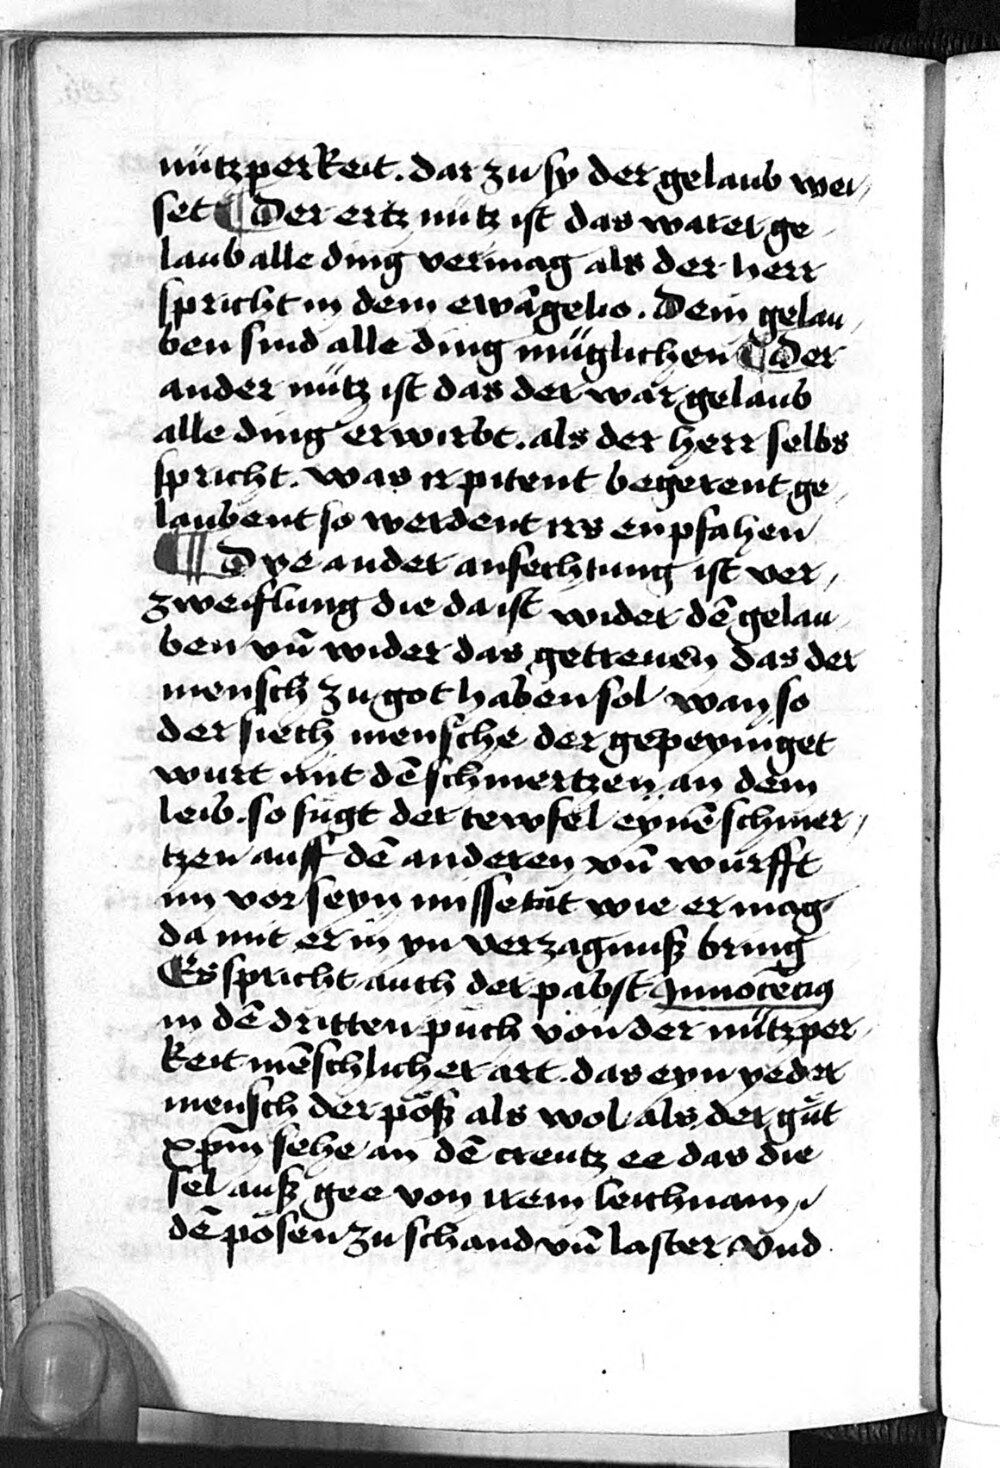 nützperkeit. dar zu sy der gelaub wei/
set ¶ Der ertz nütz ist das warer ge/
laub alle ding vermag als der herr
spricht in dem ewāgelio. Dem gelau/
ben sind alle ding müglichen ¶ Der
ander nütz ist das der war gelaub
alle ding erwirbt. als der herr selbs
spricht. was ir pitent begerent ge/
laubent so werdent irs enpfahen
¶ Dye ander anfechtung ist ver/
zweiflung die da ist wider dē gelau/
ben vn̄ wider das getrewen das der
mensch zu got haben sol wan so
der siech mensche der gepeyniget
wurt mit dē schmertzen an dem
leib. so fügt der tewfel eynē schmer/
tzen auff dē anderen vn̄ würfft
im vor seyn missetat wie er mag
da mit er in yn verzagnuß bring
Es spricht auch der pabst Innocēcius
in dē dritten puch von der nützper/
keit mēschlicher art. das eyn yeder
mensch der pöß als wol als der gut
xp̄m sehe an dē creutz ee das die
sel auß gee von irem leichnam/
dē pösen zu schand vn̄ laster vnd